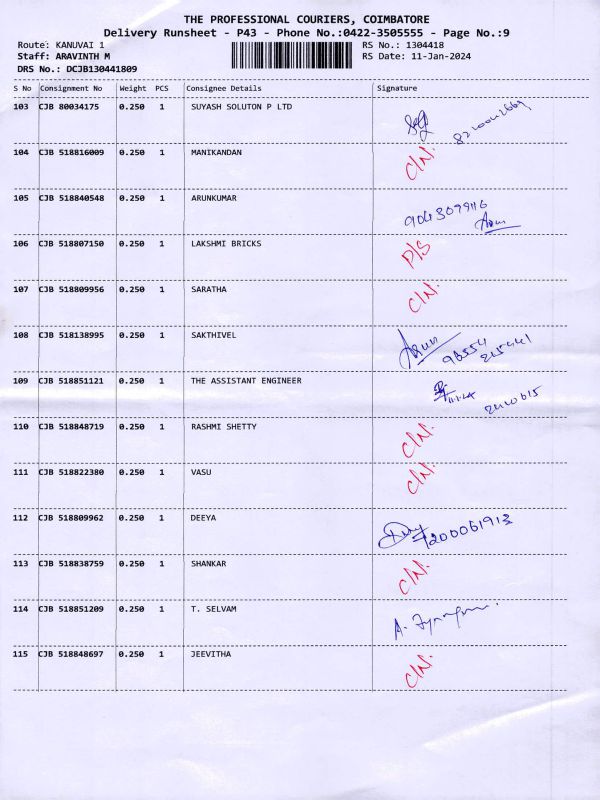 THE PROFESSIONAL COURIERS, COIMBATORE
Delivery Runsheet - P43 - Phone No.:0422-3505555 - Page No.:9
Route: KANUVAI 1 RS No.: 1304418
Staff: ARAVINTH M RS Date: 11-Jan-2024
DRS No.: DCJB130441809
S No Consignment No Weight PCS Consignee Details Signature
103 CJB 80034175 0.250 1 SUYASH SOLUTON P LTD
104 CJB 518816009 0.250 1 MANIKANDAN C/N.
105 CJB 518840548 0.250 1 ARUNKUMAR
Arun
106 CJB 518807150 0.250 1 LAKSHMI BRICKS D/S
107 CJB 518809956 0.250 1 SARATHA C/N.
108 CJB 518138995 0.250 1 SAKTHIVEL Arun
96554
109 CJB 518851121 0.250 1 THE ASSISTANT ENGINEER
110 CJB 518848719 0.250 1 RASHMI SHETTY C/N.
111 CJB 518822380 0.250 1 VASU C/N.
112 CJB 518809962 0.250 1 DEEYA 7200061913
113 CJB 518838759 0.250 1 SHANKAR C/N.
114 CJB 518851209 0.250 1 T. SELVAM A.
115 CJB 518848697 0.250 1 JEEVITHA C/N.